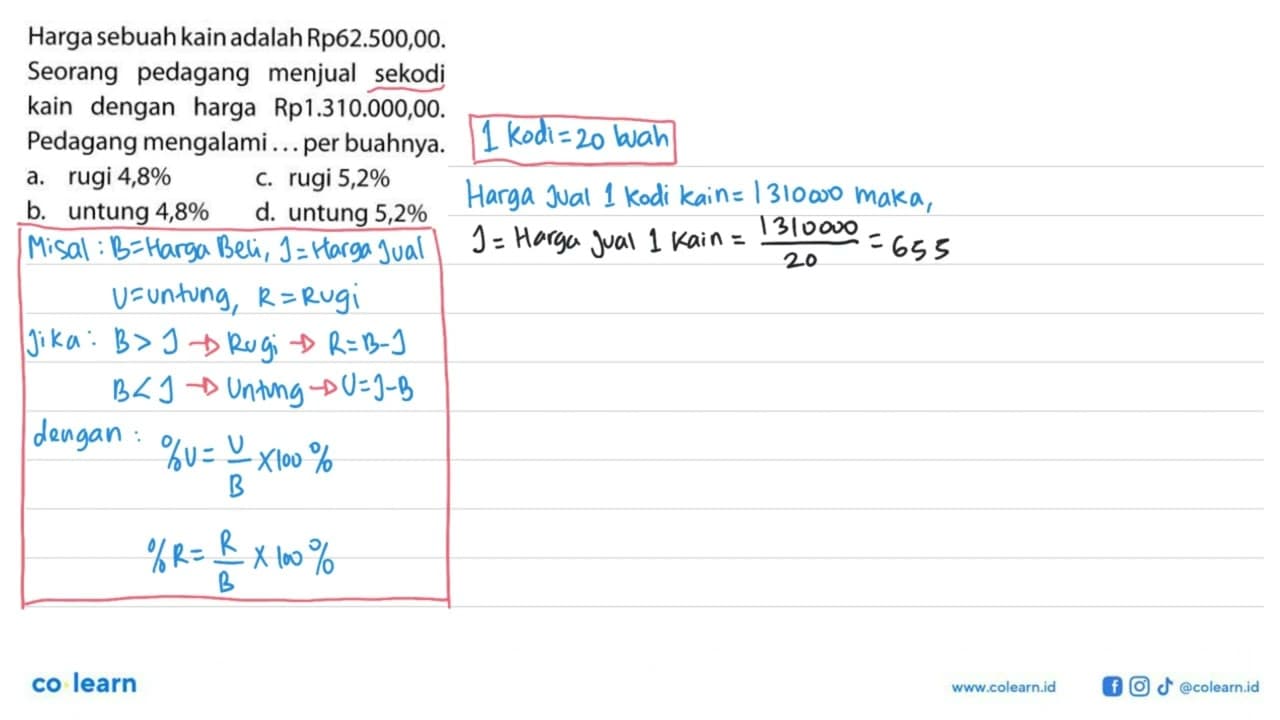 Harga sebuah kain adalah Rp62.500,00.
Seorang pedagang menjual sekodi
kain dengan harga Rp1.310.000,00.
Pedagang mengalami ... per buahnya.
a. rugi 4,8% c. rugi 5,2%
b. untung 4,8% d. untung 5,2%
1 Kodi = 20 buah
Harga Jual 1 kodi kain = 1310000 maka,
J = Harga Jual 1 Kain = 1310000/20 = 655
Misal : B = Harga Beli, J = Harga Jual
U = Untung, R = Rugi
Jika : B > J → Rugi → R = B - J
B < J → Untung → U = J - B
dengan :
%U = U/B × 100%
%R = R/B × 100%
co learn
www.colearn.id
@colearn.id